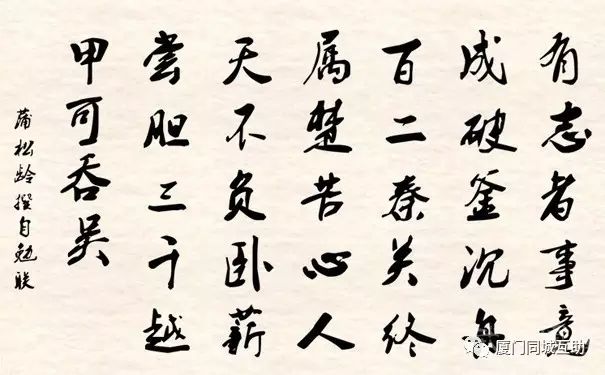 有志者事竟
成破釜沉舟
百二秦关终
属楚苦心人
天不负卧薪
尝胆三千越
甲可吞吴
蒲松龄撰自勉联
厦门同城互助